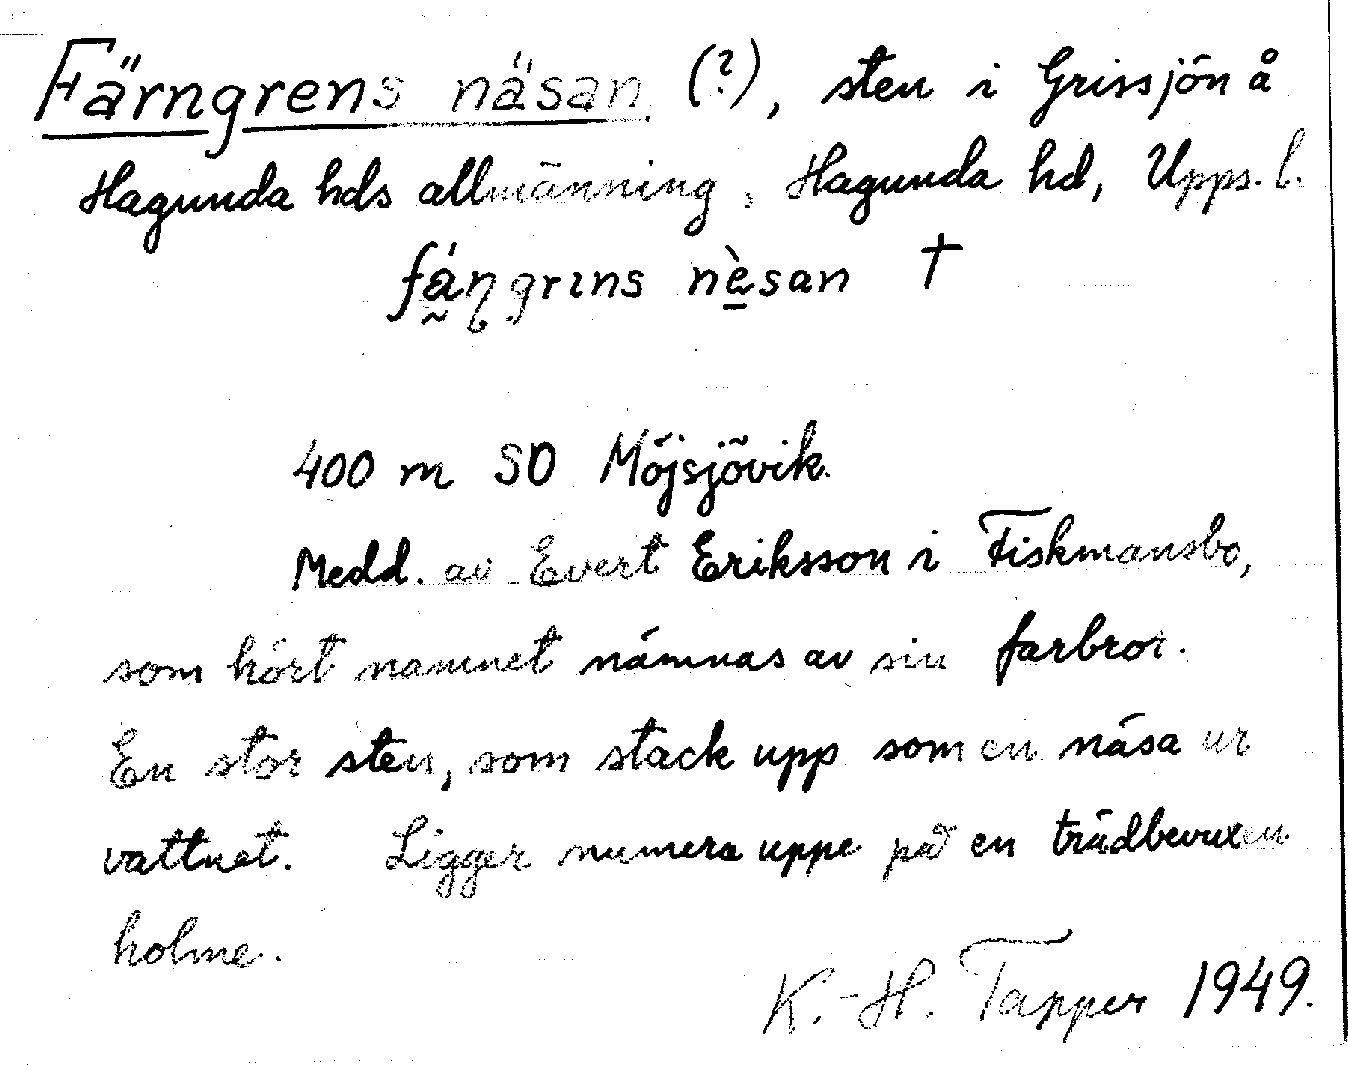 Färngrens näsan (?), sten i Grissjön å
Hagunda hds allmänning, Hagunda hd, Upps. l.
fą́ṇgrıns nè̱san †
400 m SO Möjsjövik.
Medd. av Evert Eriksson i Fiskmansbo,
som hört namnet nämnas av sin farbror.
En stor sten, som stack upp som en näsa ur
vattnet. Ligger numera uppe på en trädbevuxen
holme.
K.-H. Tapper 1949.